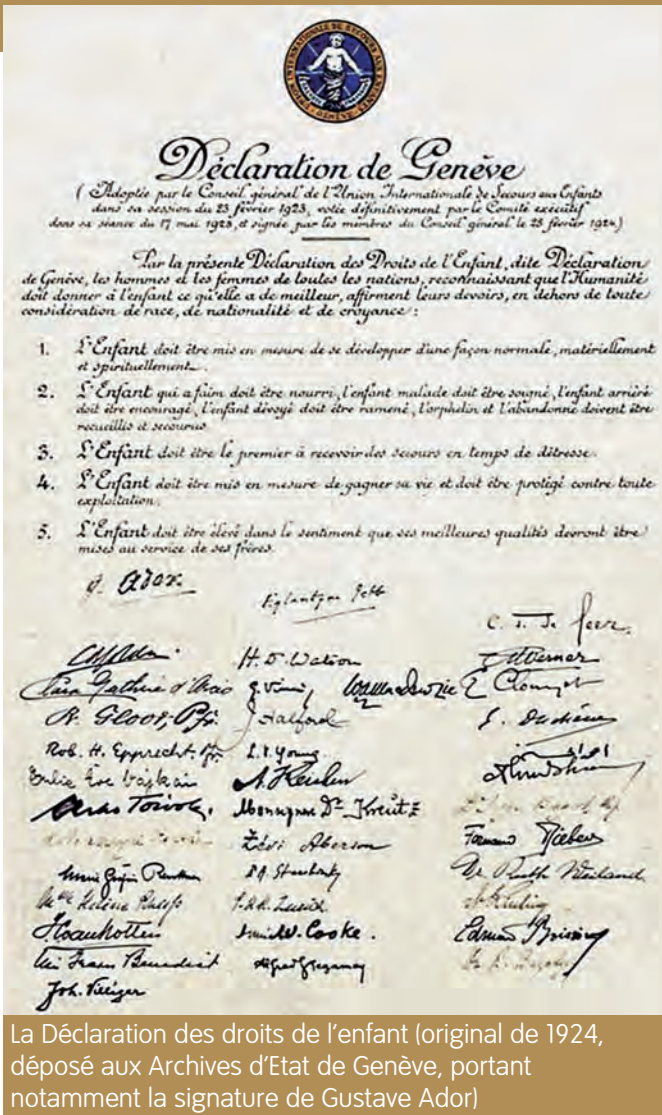 UNION INTERNATIONALE DE SECOURS AUX ENFANTS
GENÈVE
Déclaration de Genève
( Adoptée par le Conseil général de l'Union Internationale de Secours aux Enfants
dans sa session du 23 février 1923, votée définitivement par le Comité exécutif
dans sa séance du 17 mai 1923, et signée par les membres du Conseil général le 28 février 1924)
Par la présente Déclaration des Droits de l'Enfant, dite Déclaration
de Genève, les hommes et les femmes de toutes les nations, reconnaissant que l'Humanité
doit donner à l'enfant ce qu'elle a de meilleur, affirment leurs devoirs, en dehors de toute
considération de race, de nationalité et de croyance :
1. L'Enfant doit être mis en mesure de se développer d'une façon normale, matériellement
et spirituellement.
2. L'Enfant qui a faim doit être nourri, l'enfant malade doit être soigné, l'enfant arriéré
doit être encouragé, l'enfant dévoyé doit être ramené, l'orphelin et l'abandonné doivent être
recueillis et secourus.
3. L'Enfant doit être le premier à recevoir des secours en temps de détresse.
4. L'Enfant doit être mis en mesure de gagner sa vie et doit être protégé contre toute
exploitation.
5. L'Enfant doit être élevé dans le sentiment que ses meilleures qualités devront être
mises au service de ses frères.
G. Ador
Eglantyne Jebb
H. D. Watson
Werner
Clouzot
R. Gloor, Pfr.
Halford
Rob. H. Epprecht. Pfr.
L. V. Young
Monsignore Dr. Kreutz
Aberson
Dr. Ruth Weiland
Mlle Hélène
Cooke.
Benedict
Joh. Villiger
La Déclaration des droits de l'enfant (original de 1924,
déposé aux Archives d'Etat de Genève, portant
notamment la signature de Gustave Ador)